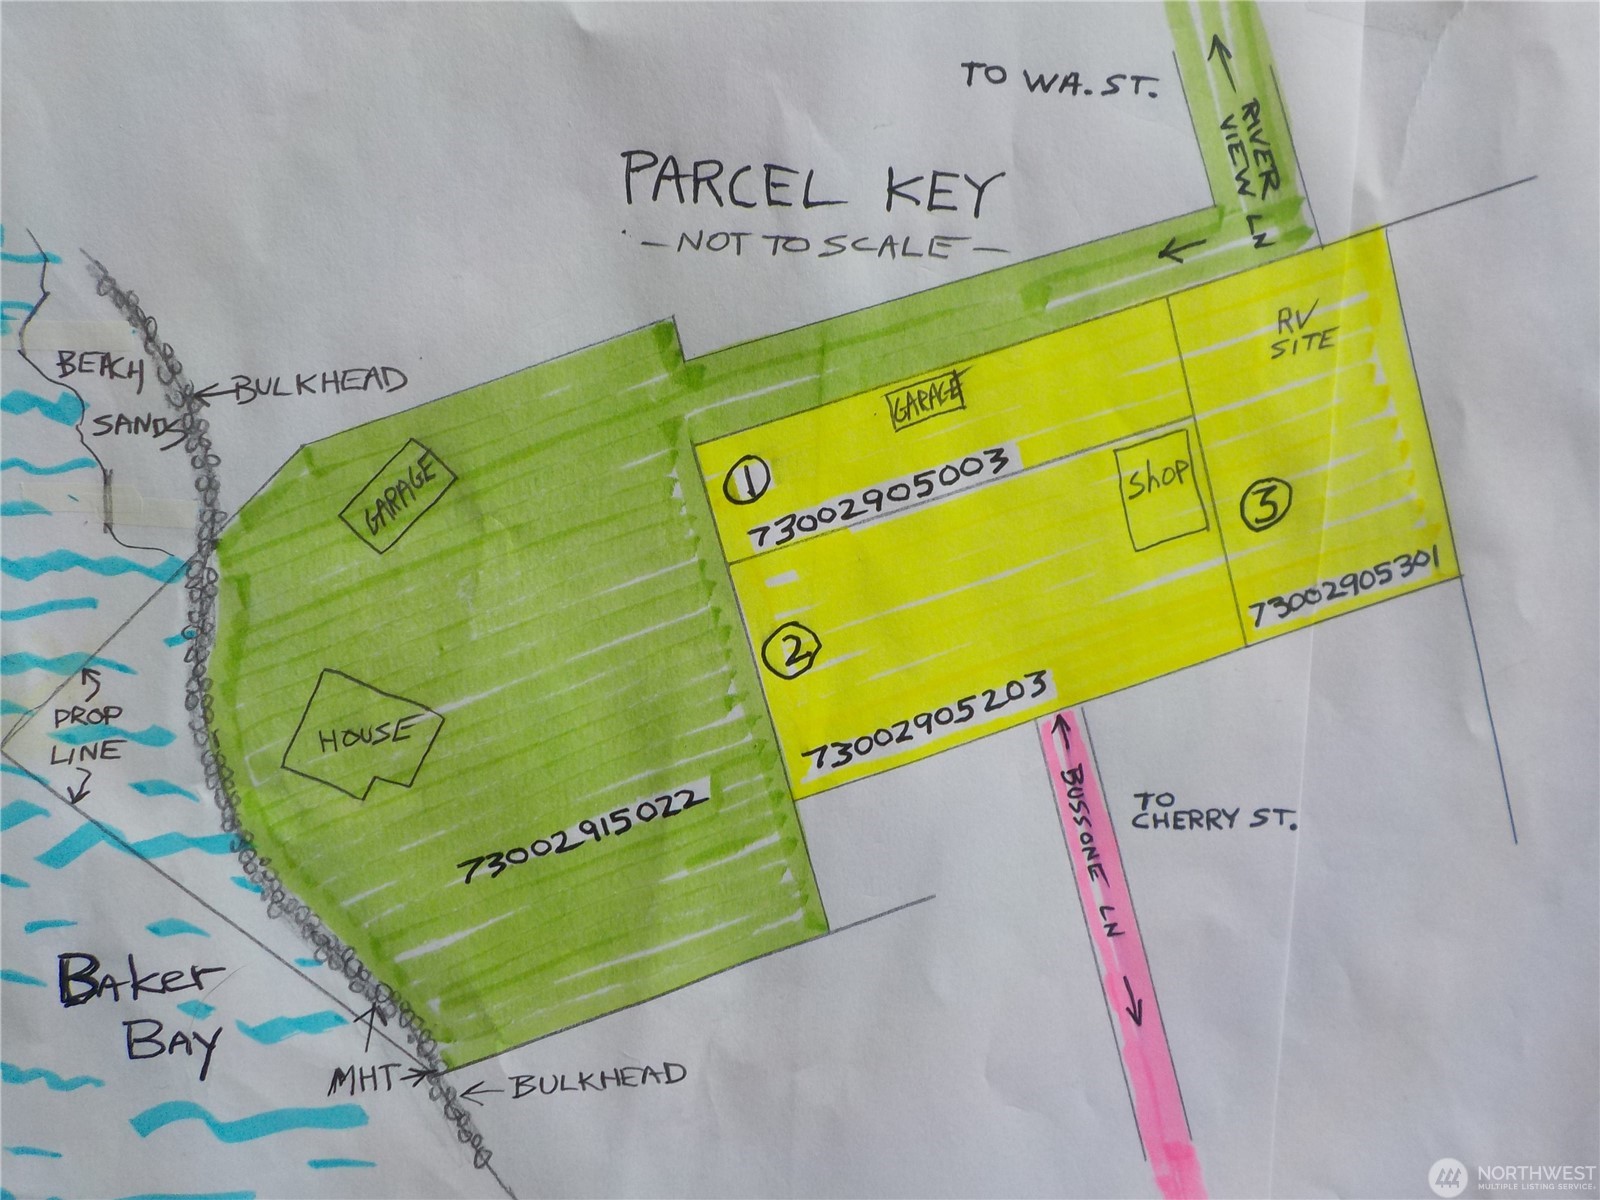 TO WA. ST.
RIVER
VIEW LN
PARCEL KEY
- NOT TO SCALE -
RV
SITE
BEACH
SANDS
BULKHEAD
GARAGE
GARAGE
1
73002905003
SHOP
3
73002905301
2
73002905203
PROP
LINE
HOUSE
73002915022
BUSSONE LN
TO
CHERRY ST.
BAKER
BAY
MHT
BULKHEAD
NORTHWEST
MULTIPLE LISTING SERVICE